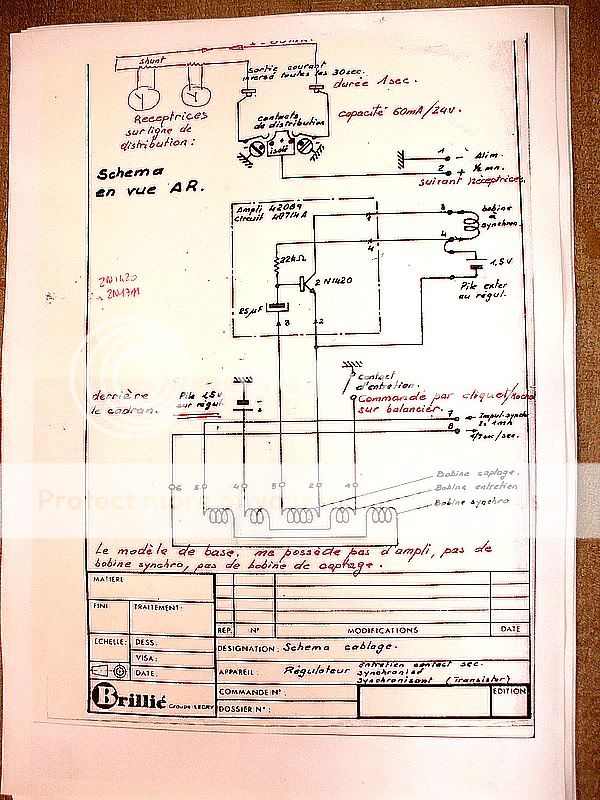 shunt
Sortie courant
inversé toutes les 30sec.
durée 1sec.
Receptrices
sur ligne de
distribution :
contacts
de distribution
isolé
capacité 60mA/24v.
1 - Alim.
2 + ½ mn.
suivant réceptrices.
Schema
en vue AR.
Ampli 42089
Circuit 48714A
3
4
bobine
à
synchro.
22kΩ
2N1420
25µF
8 2
1,5V
Pile exter
au régul.
2N1420
2N1711
derrière
le cadran.
Pile 1,5V
sur régul
Contact
d'entretien.
Commandé par cliquet/
sur balancier.
7
8
Impul. synch
1/sec/sec.
6 5 4 8 2 1
Bobine captage.
Bobine entretien
Bobine synchro
Le modèle de base. ne possède pas d'ampli, pas de
bobine synchro, pas de bobine de captage.
MATIERE
FINI
TRAITEMENT:
REP. N° MODIFICATIONS DATE
ECHELLE:
DESS.
VISA:
DATE:
DESIGNATION: Schema cablage.
APPAREIL: Régulateur
entretien contact sec.
synchronisé
synchronisant (Transistor)
Brillié
Groupe LEGRY
COMMANDE N°:
DOSSIER N°:
EDITION
Protect more of your memories